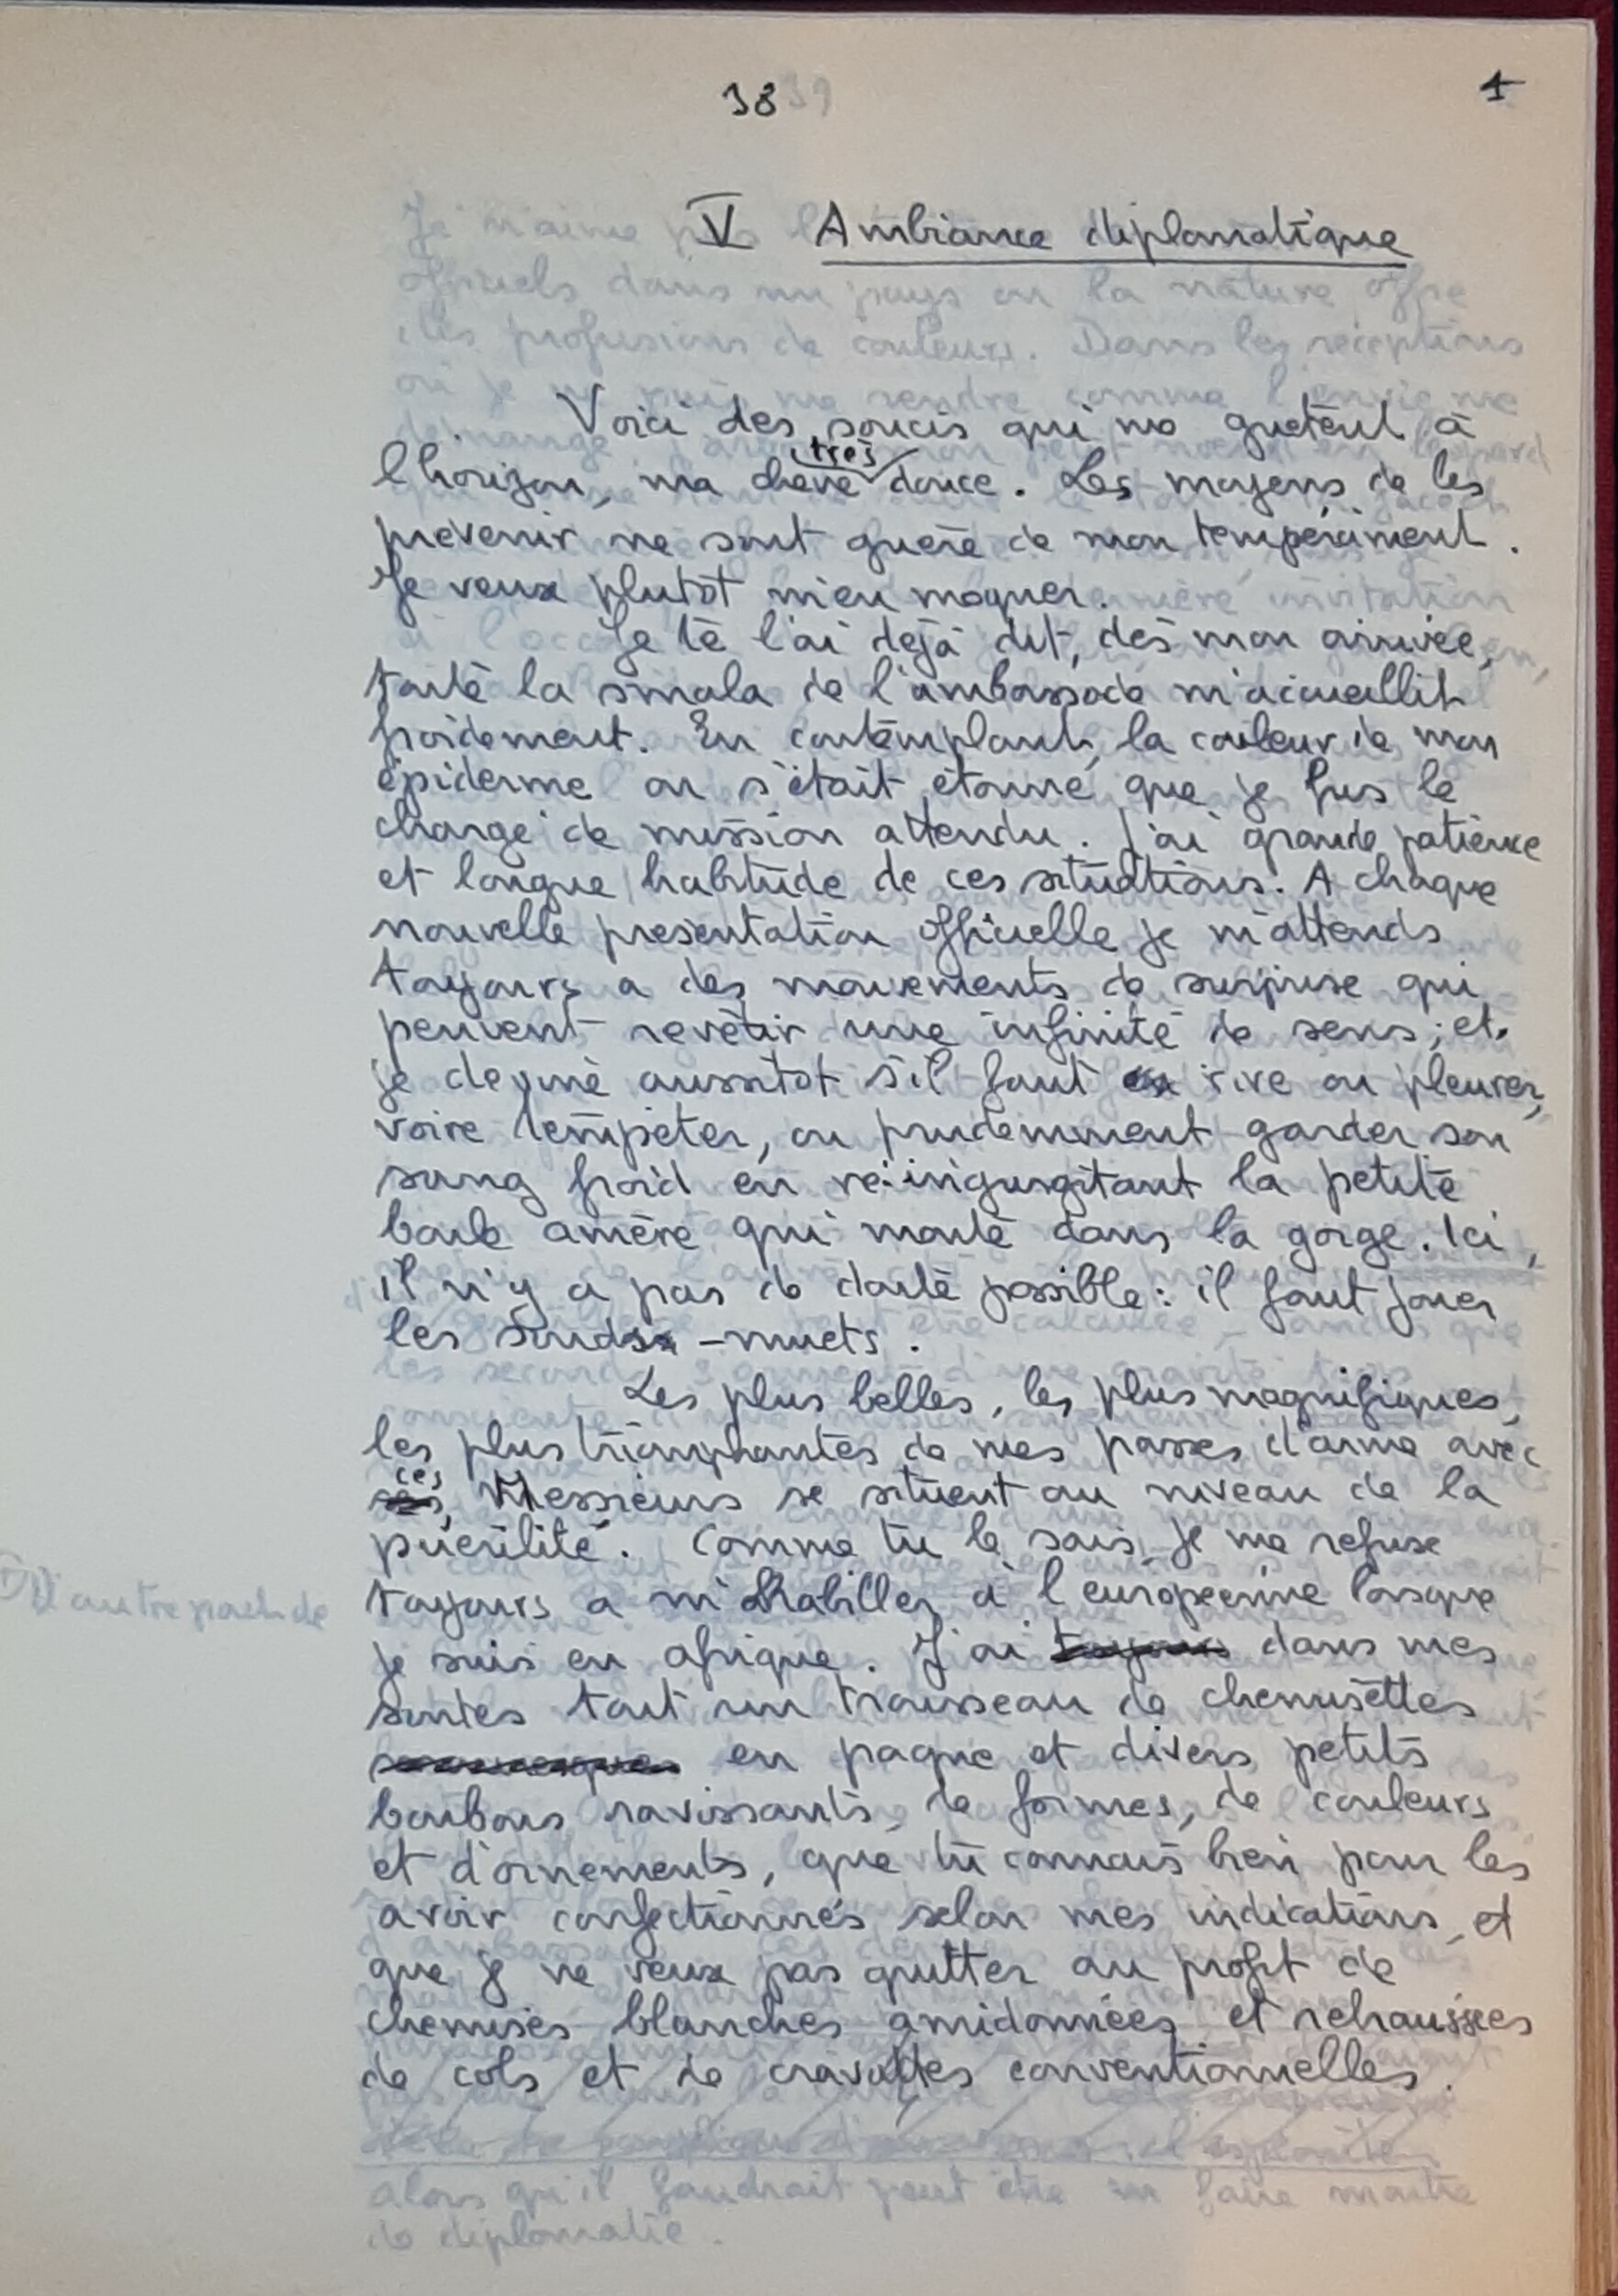 38
1
V Ambiance diplomatique
Voici des soucis qui me guètent à
très
l'horizon, ma chère douce. Les moyens de les
prévenir ne sont guère de mon tempérament.
Je veux plutôt m'en moquer.
Je te l'ai déjà dit, dès mon arrivée,
toute la smala de l'ambassade m'accueillit
froidement. En contemplant, la couleur de mon
épiderme on s'était étonné que je fus le
chargé de mission attendu. J'ai grande patience
et longue habitude de ces situations. A chaque
nouvelle présentation officielle je m'attends
toujours a des mouvements de surprise qui
peuvent revêtir une infinité de sens; et
je devine aussitôt s'il faut rire ou pleurer,
voire tempêter, ou prudemment garder son
sang froid en ré-ingurgitant la petite
boule amère qui monte dans la gorge. Ici,
il n'y a pas de doute possible: il faut jouer
les sourds-muets.
Les plus belles, les plus magnifiques,
les plus triomphantes de mes passes d'arme avec
ces
Messieurs se situent au niveau de la
puérilité. Comme tu le sais, je me refuse
toujours à m'habiller à l'européenne lorsque
je suis en afrique. J'ai toujours dans mes
soutes tout un trousseau de chemisettes
en pagne et divers petits
boubous ravissants, de formes, de couleurs
et d'ornements, que tu connais bien pour les
avoir confectionnés selon mes indications, et
que je ne veux pas quitter au profit de
chemises blanches amidonnées et rehaussées
de cols et de cravattes conventionnelles.